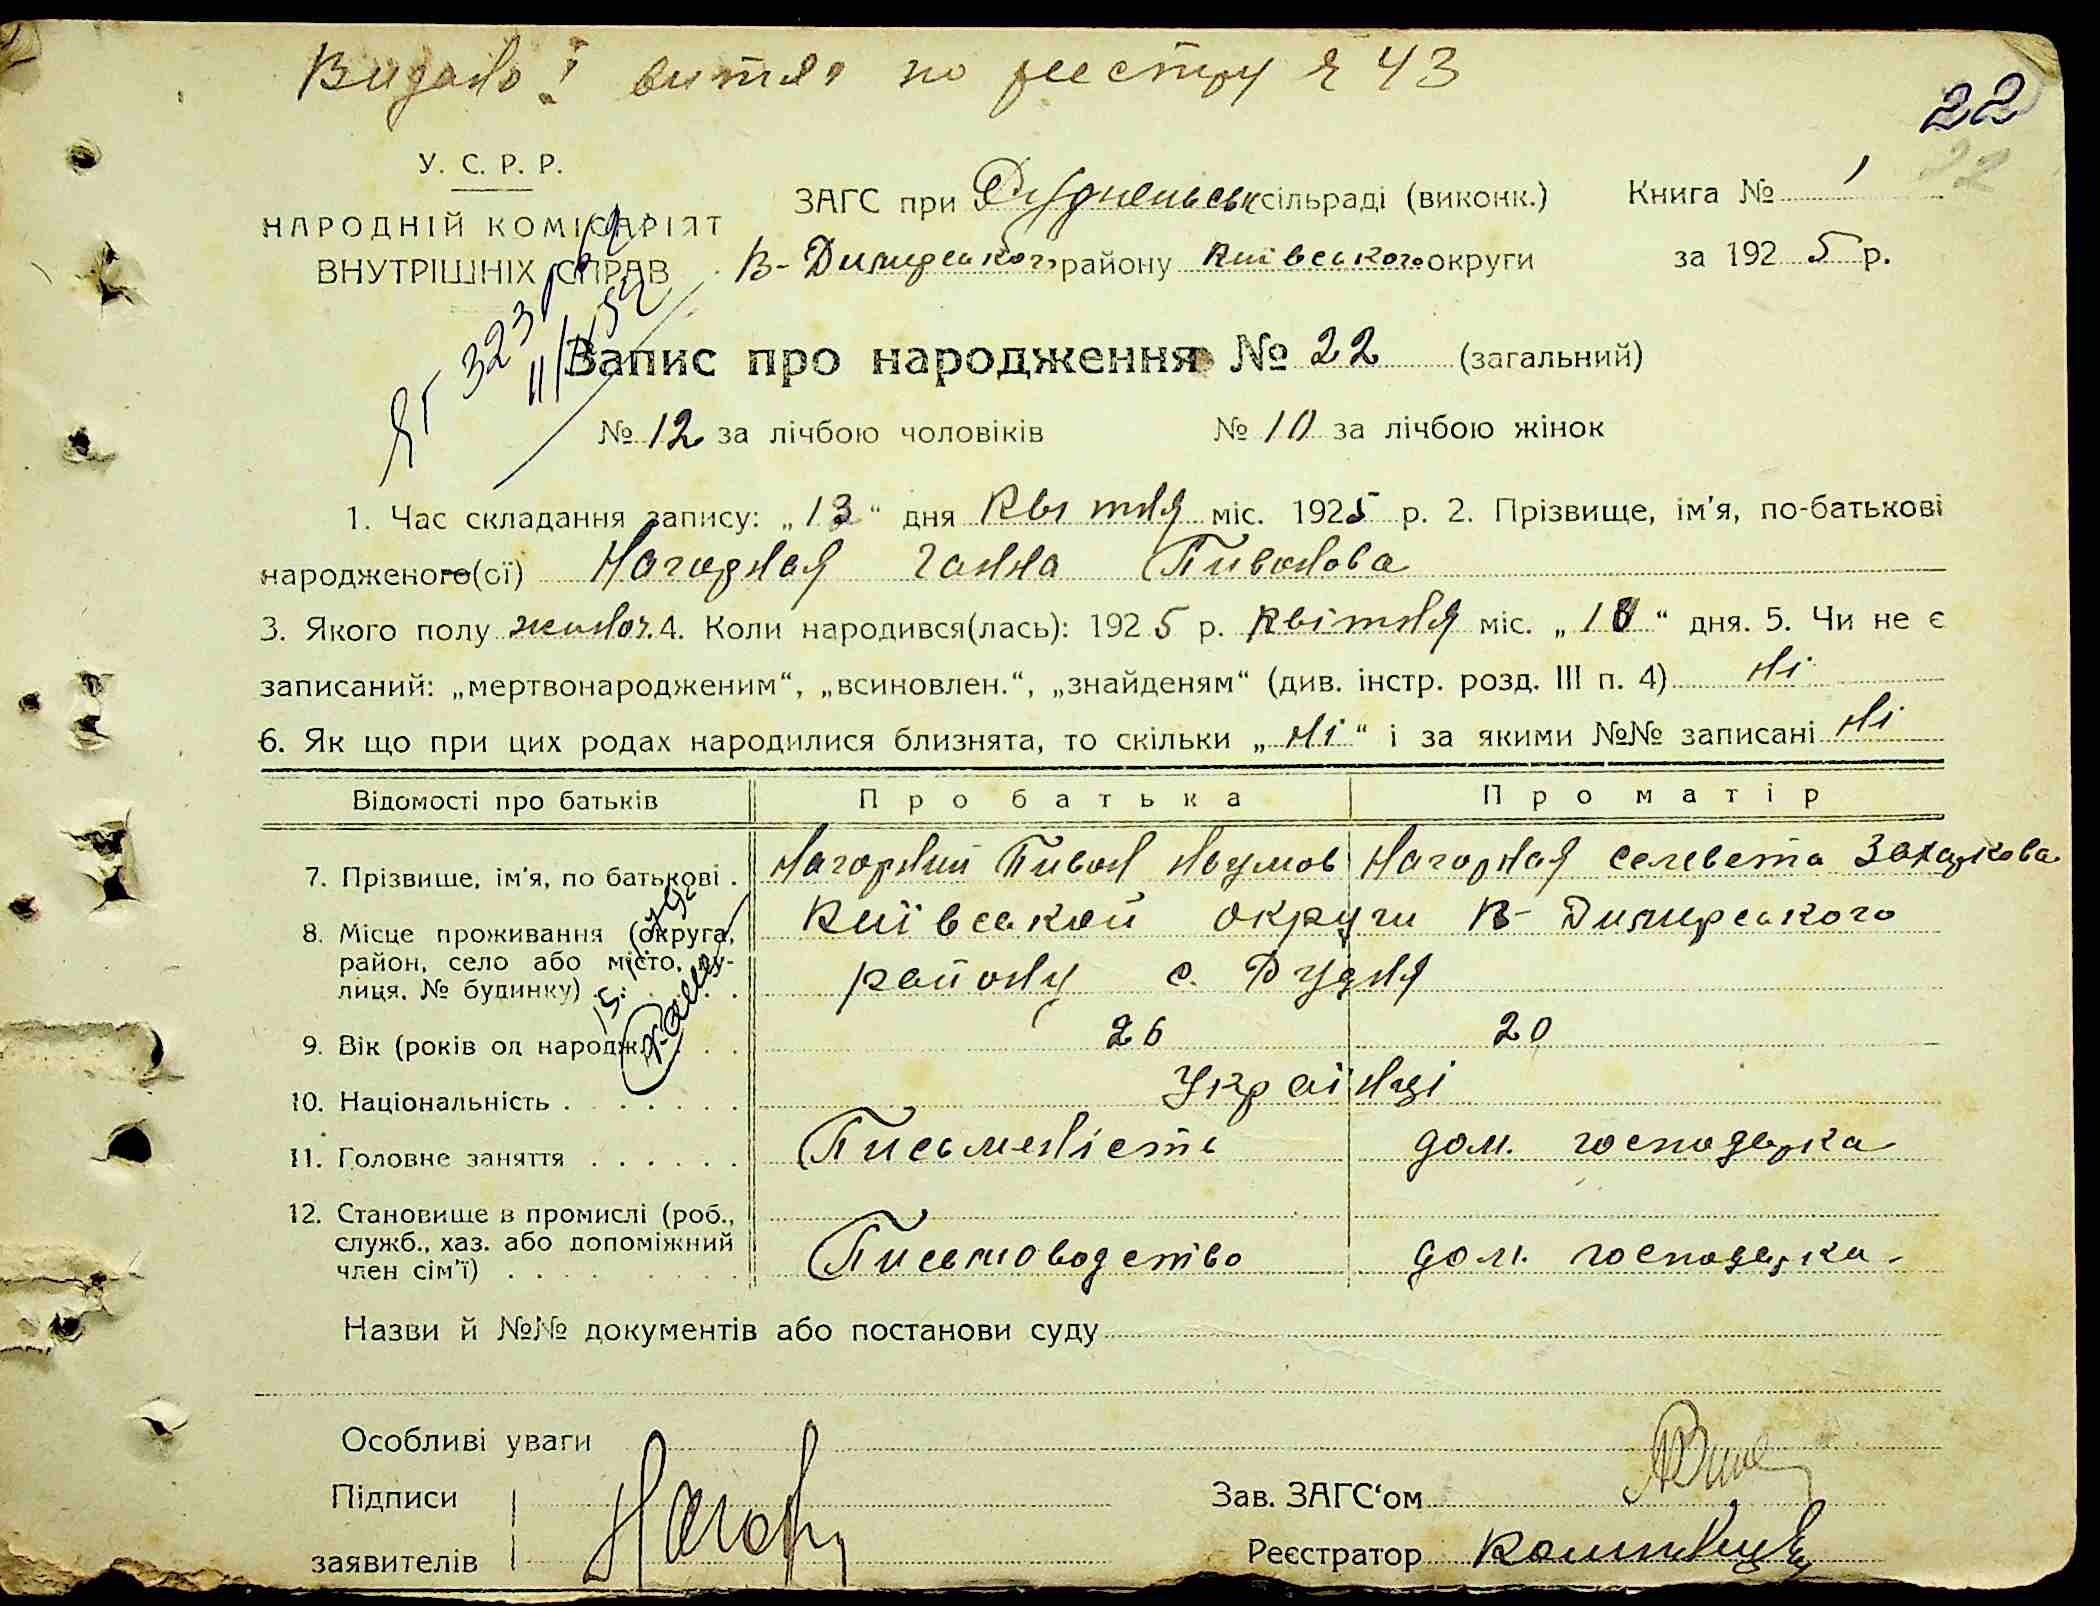 Видано витяг по реєстру № 43
22
22
У. С. Р. Р.
НАРОДНІЙ КОМІСАРІЯТ
ВНУТРІШНІХ СПРАВ
ЗАГС при Рудненськ сільраді (виконк.)
В-Димирського району Київського округи
Книга № 1
за 1925 р.
Запис про народження № 22 (загальний)
№ 12 за лічбою чоловіків № 10 за лічбою жінок
1. Час складання запису: „13“ дня Квітня міс. 1925 р. 2. Прізвище, ім'я, по-батькові
народженого(ої) Нагорная Ганна Пивонова
3. Якого полу жиноч. 4. Коли народився(лась): 1925 р. Квітня міс. „ “ дня. 5. Чи не є
записаний: „мертвонародженим“, „всиновлен.“, „знайденям“ (див. інстр. розд. III п. 4) Ні
6. Як що при цих родах народилися близнята, то скільки „Ні“ і за якими №№ записані Ні
Відомості про батьків Про батька Про матір
7. Прізвище, ім'я, по батькові . Нагорний Пивон Наумов Нагорная Селевета Захаркова
8. Місце проживання (округа, район, село або місто, ву-лиця, № будинку) . . . .
Київськой округи В-Димирського
району с. Рудня
9. Вік (років од народж.) . . . 26 20
10. Національність . . . . . . . Українці
11. Головне заняття . . . . . . Письменість дом. господарка
12. Становище в промислі (роб.,
служб., хаз. або допоміжний
член сім'ї) . . . . . . . . Письмоводство дом. господарка.
Назви й №№ документів або постанови суду
Особливі уваги
Підписи
заявителів
Нагорн
Зав. ЗАГС'ом
Реєстратор